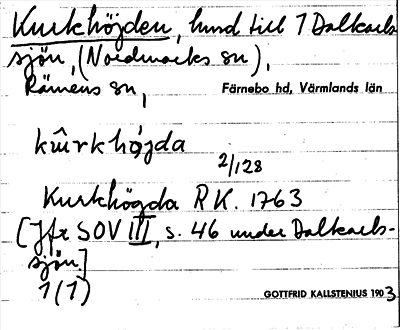 Kurkhöjden, hund till 1 Dalkarls
sjön, (Nordmarks sn),
Rämens sn,
Färnebo hd, Värmlands län
kûrkhǿjda
2/128
Kurkhögda RK. 1763
[Jfr SOV III, s. 46 under Dalkarls-
sjön.]
1(1)
GOTTFRID KALLSTENIUS 1903